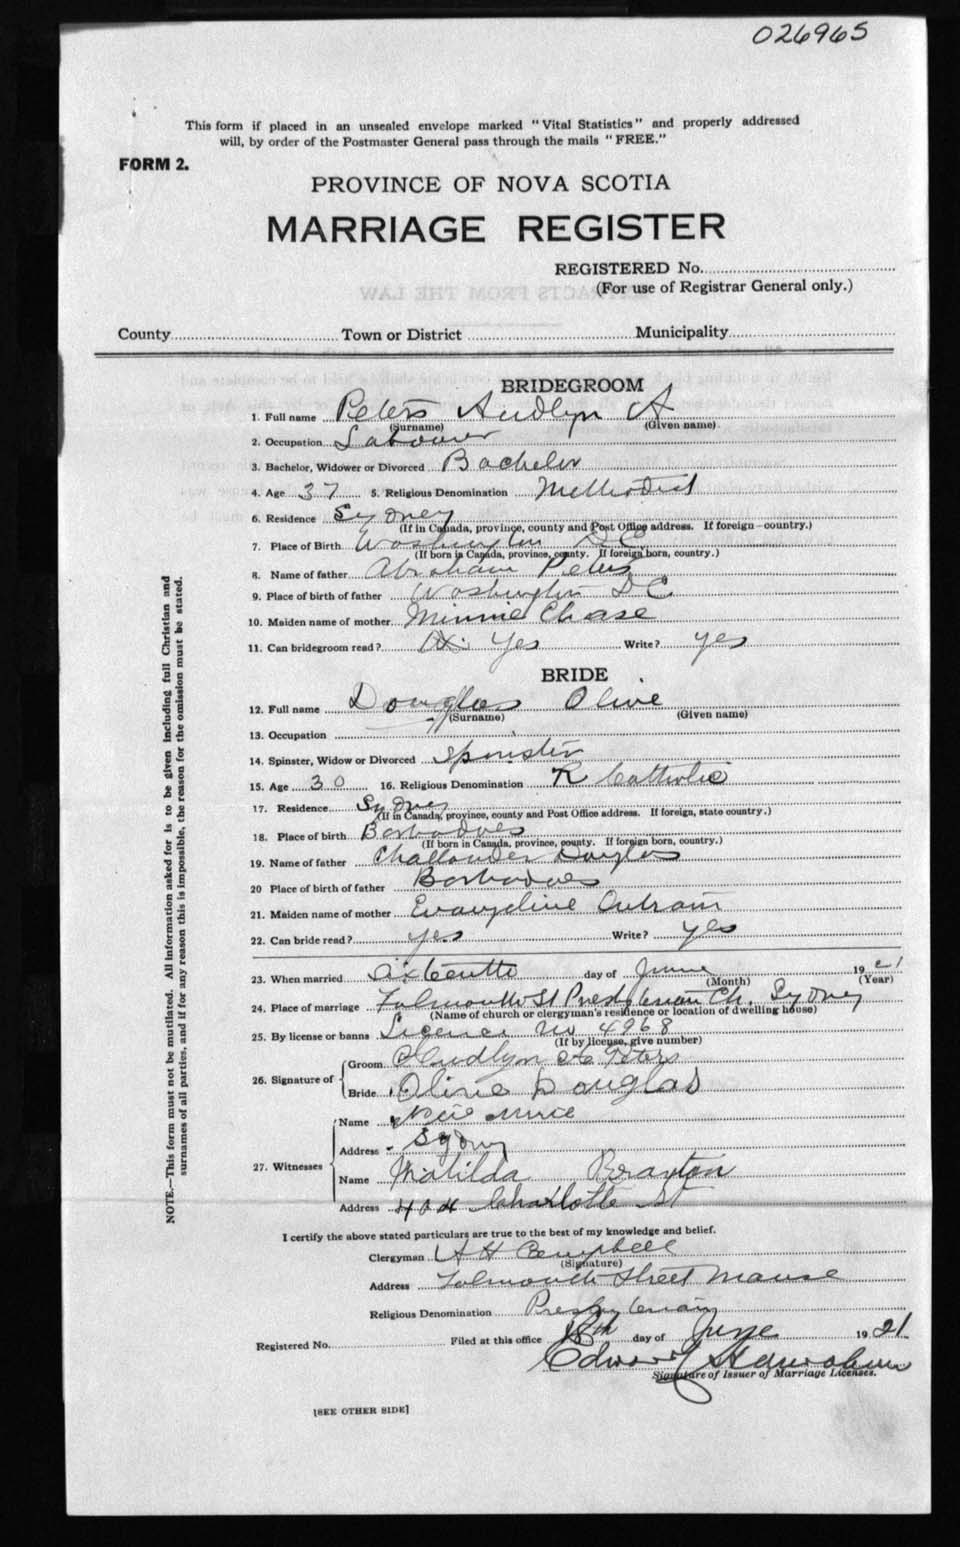 026965
This form if placed in an unsealed envelope marked "Vital Statistics" and properly addressed
will, by order of the Postmaster General pass through the mails "FREE."
FORM 2.
PROVINCE OF NOVA SCOTIA
MARRIAGE REGISTER
REGISTERED No.
(For use of Registrar General only.)
County Town or District Municipality
BRIDEGROOM
1. Full name Peters Audlyn A
(Surname) (Given name)
2. Occupation Labourer
3. Bachelor, Widower or Divorced Bachelor
4. Age 37 5. Religious Denomination Methodist
6. Residence Sydney
(If in Canada, province, county and Post Office address. If foreign—country.)
7. Place of Birth Washington DC
(If born in Canada, province, county. If foreign born, country.)
8. Name of father Abraham Peters
9. Place of birth of father Washington DC
10. Maiden name of mother Minnie Chase
11. Can bridegroom read? Yes Write? yes
BRIDE
12. Full name Douglas Olive
(Surname) (Given name)
13. Occupation
14. Spinster, Widow or Divorced Spinster
15. Age 30 16. Religious Denomination R Catholic
17. Residence Sydney
(If in Canada, province, county and Post Office address. If foreign, state country.)
18. Place of birth Barbadoes
(If born in Canada, province, county. If foreign born, country.)
19. Name of father Challander Douglas
20 Place of birth of father Barbadoes
21. Maiden name of mother Evangeline Outram
22. Can bride read? yes Write? yes
23. When married Sixteenth day of June 1921
(Month) (Year)
24. Place of marriage Falmouth St Presbyterian Ch. Sydney
(Name of church or clergyman's residence or location of dwelling house)
25. By license or banns Licence No 4968
(If by license, give number)
26. Signature of Groom Audlyn A Peters
Bride Olive Douglas
27. Witnesses Name
Address Sydney
Name Matilda Braxton
Address 404 Charlotte St
I certify the above stated particulars are true to the best of my knowledge and belief.
Clergyman A H Campbell
(Signature)
Address Falmouth Street Manse
Religious Denomination Presbyterian
Registered No. Filed at this office 18th day of June 1921
Edward
Signature of Issuer of Marriage Licenses.
[SEE OTHER SIDE]
NOTE.—This form must not be mutilated. All information asked for is to be given including full Christian and
surnames of all parties, and if for any reason this is impossible, the reason for the omission must be stated.